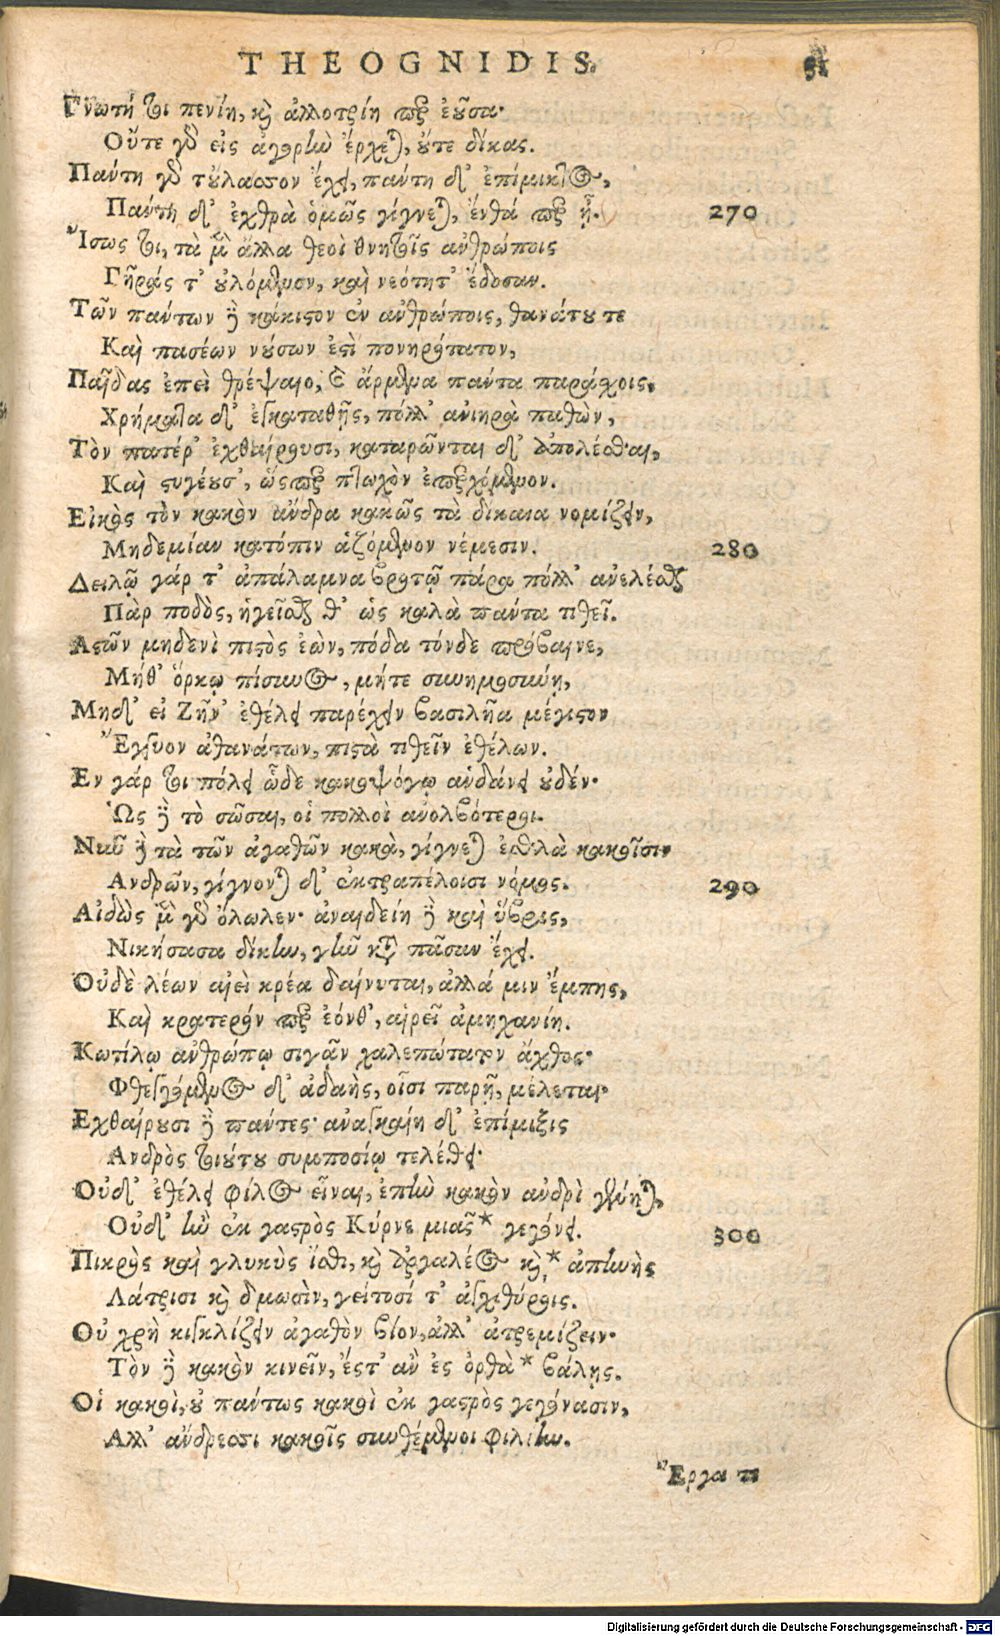 THEOGNIDIS. 51
Γνωτή τοι πενίη, καὶ ἀλλοτρίη περ ἐοῦσα·
Οὔτε γὰρ εἰς ἀγορὴν ἔρχεται, οὔτε δίκας.
Πάντη γὰρ τοὔλασσον ἔχει, πάντη δ' ἐπίμικτος,
Πάντη δ' ἐχθρὰ ὁμῶς γίγνεται, ἔνθά περ ᾖ. 270
Ἴσως τοι, τὰ μὲν ἄλλα θεοὶ θνητοῖς ἀνθρώποις
Γῆράς τ' οὐλόμενον, καὶ νεότητ' ἔδοσαν.
Τῶν πάντων δὲ κάκιστον ἐν ἀνθρώποις, θανάτου τε
Καὶ πασέων νούσων ἐστὶ πονηρότατον,
Παῖδας ἐπεὶ θρέψαιο, καὶ ἄρμενα πάντα παράσχοις,
Χρήματα δ' ἐγκαταθῇς, πόλλ' ἀνιηρὰ παθὼν,
Τὸν πατέρ' ἐχθαίρουσι, καταρῶνται δ' ἀπολέσθαι,
Καὶ στυγέουσ', ὥσπερ πτωχὸν ἐπερχόμενον.
Εἰκὸς τὸν κακὸν ἄνδρα κακῶς τὰ δίκαια νομίζειν,
Μηδεμίαν κατόπιν ἁζόμενον νέμεσιν. 280
Δειλῷ γάρ τ' ἀπάλαμνα βροτῷ πάρα πόλλ' ἀνελέσθαι
Πὰρ ποδὸς, ἡγεῖσθαι θ' ὡς καλὰ πάντα τιθεῖ.
Αστῶν μηδενὶ πιστὸς ἐὼν, πόδα τόνδε πρόβαινε,
Μήθ' ὅρκῳ πίσυνος, μήτε συνημοσύνῃ,
Μηδ' εἰ Ζῆν' ἐθέλει παρέχειν βασιλῆα μέγιστον
Ἔγγυον ἀθανάτων, πιστὰ τιθεῖν ἐθέλων.
Εν γάρ τοι πόλει ὧδε κακοψόγῳ ἁνδάνει οὐδέν·
Ὡς δὲ τὸ σῶσαι, οἱ πολλοὶ ἀνολβότεροι.
Νῦν δὲ τὰ τῶν ἀγαθῶν κακὰ, γίγνεται ἐσθλὰ κακοῖσιν
Ανδρῶν, γίγνονται δ' ἐκτραπέλοισι νόμοις. 290
Αἰδὼς μὲν γὰρ ὄλωλεν· ἀναιδείη δὲ καὶ ὕβρις,
Νικήσασα δίκην, γῆν κατὰ πᾶσαν ἔχει.
Οὐδὲ λέων αἰεὶ κρέα δαίνυται, ἀλλά μιν ἔμπης,
Καὶ κρατερόν περ ἐόνθ', αἱρεῖ ἀμηχανίη.
Κωτίλῳ ἀνθρώπῳ σιγᾷν χαλεπώτατον ἄχθος·
Φθεγγόμενος δ' ἀδαὴς, οἷσι παρῇ, μέλεται·
Εχθαίρουσι δὲ πάντες· ἀναγκαίη δ' ἐπίμιξις
Ανδρὸς τοιούτου συμποσίῳ τελέθει·
Οὐδ' ἐθέλει φίλος εἶναι, ἐπὴν κακὸν ἀνδρὶ γένηται,
Οὐδ' ἢν ἐκ γαστρὸς Κύρνε μιᾶς* γεγόνει. 300
Πικρὸς καὶ γλυκὺς ἴσθι, καὶ ἀργαλέος καὶ,* ἀπηνὴς
Λάτρισι καὶ δμωσὶν, γείτοσί τ' ἀγχιθύροις.
Οὐ χρὴ κιγκλίζειν ἀγαθὸν βίον, ἀλλ' ἀτρεμίζειν·
Τὸν δὲ κακὸν κινεῖν, ἔστ' ἂν ἐς ὀρθὰ* βάλῃς.
Οἱ κακοὶ, οὐ πάντως κακοὶ ἐκ γαστρὸς γεγόνασιν,
Αλλ' ἄνδρεσσι κακοῖς συνθέμενοι φιλίην.
Ἔργα τε
Digitalisierung gefördert durch die Deutsche Forschungsgemeinschaft - DFG